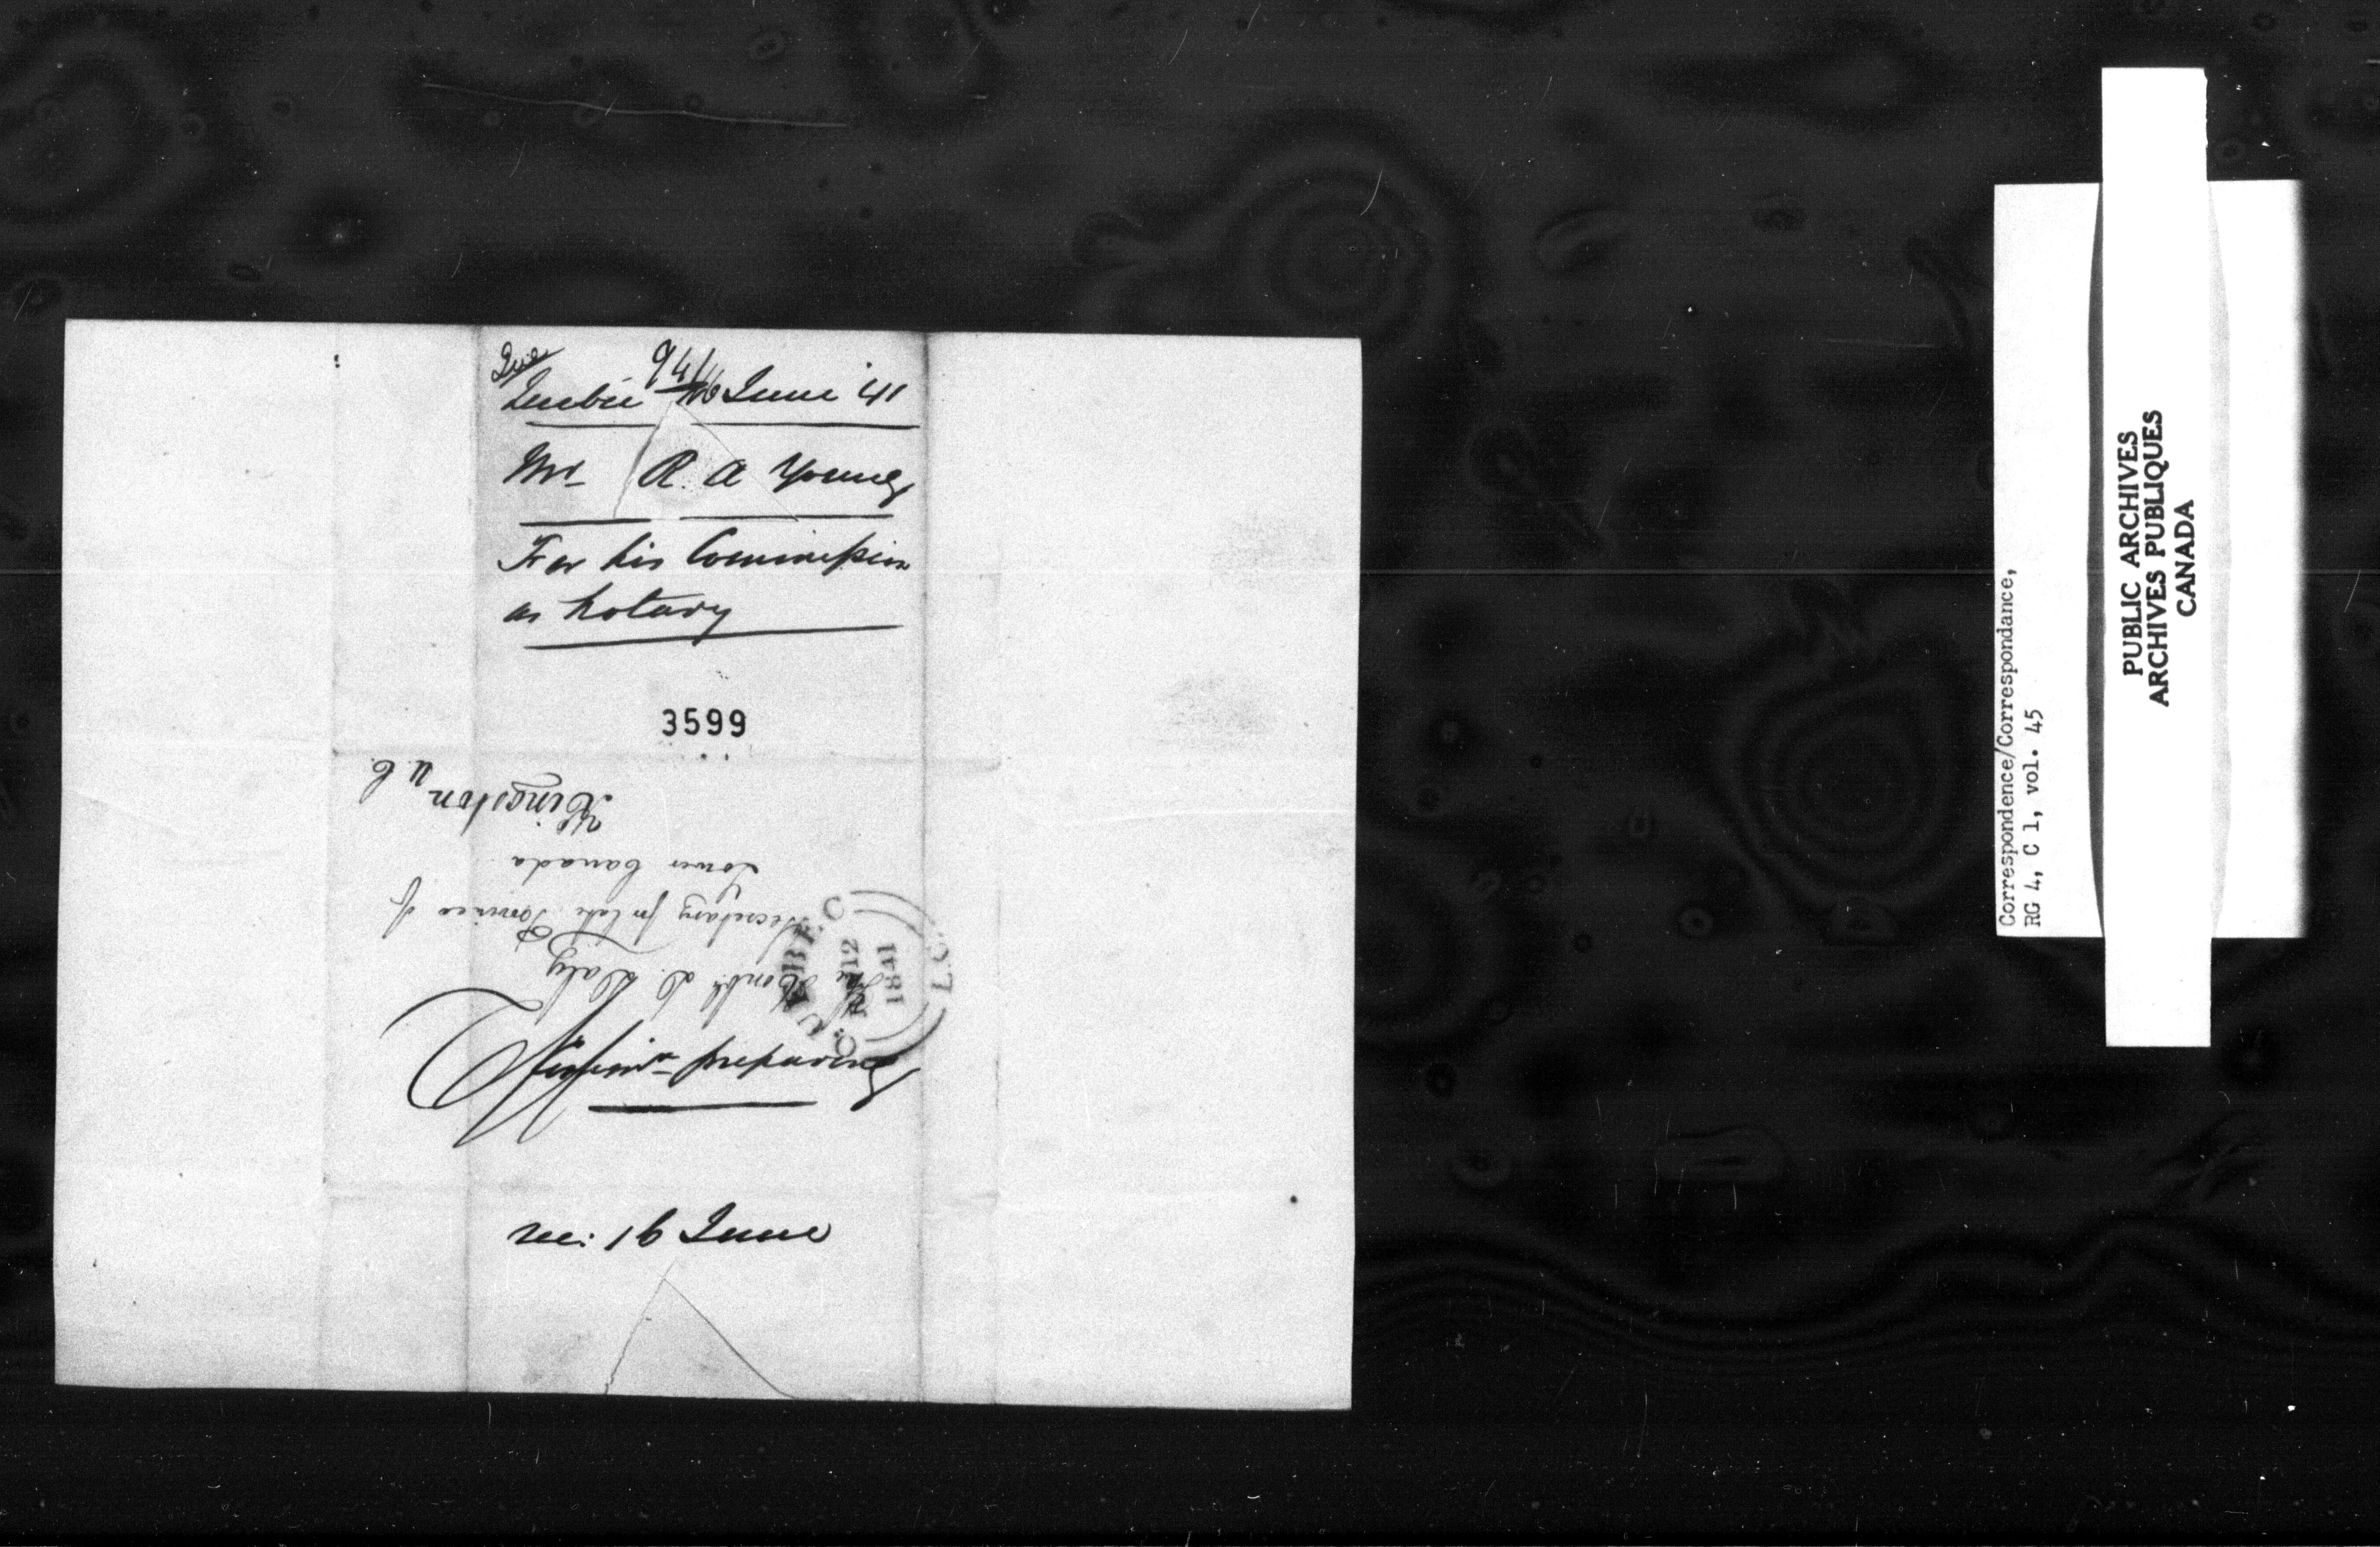 Que
Quebec 16 June 41
Mr R. A Young
For his Commission
as Notary
3599
The Honble D. Daly
Secretary for late Province of
Lower Canada
Kingston
U. C.
QUEBEC L.C.
JU 12
1841
preparing
rec: 16 June
Correspondence/Correspondance,
RG 4, C 1, vol. 45
PUBLIC ARCHIVES
ARCHIVES PUBLIQUES
CANADA